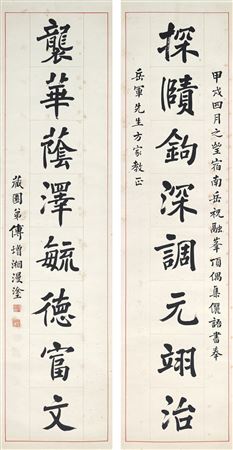 甲戌四月之望宿南岳祝融峯頂偶集儷語書奉
探賾鉤深調元翊治
岳軍先生方家教正
襲華蔭澤毓德富文
藏園弟傅增湘漫塗